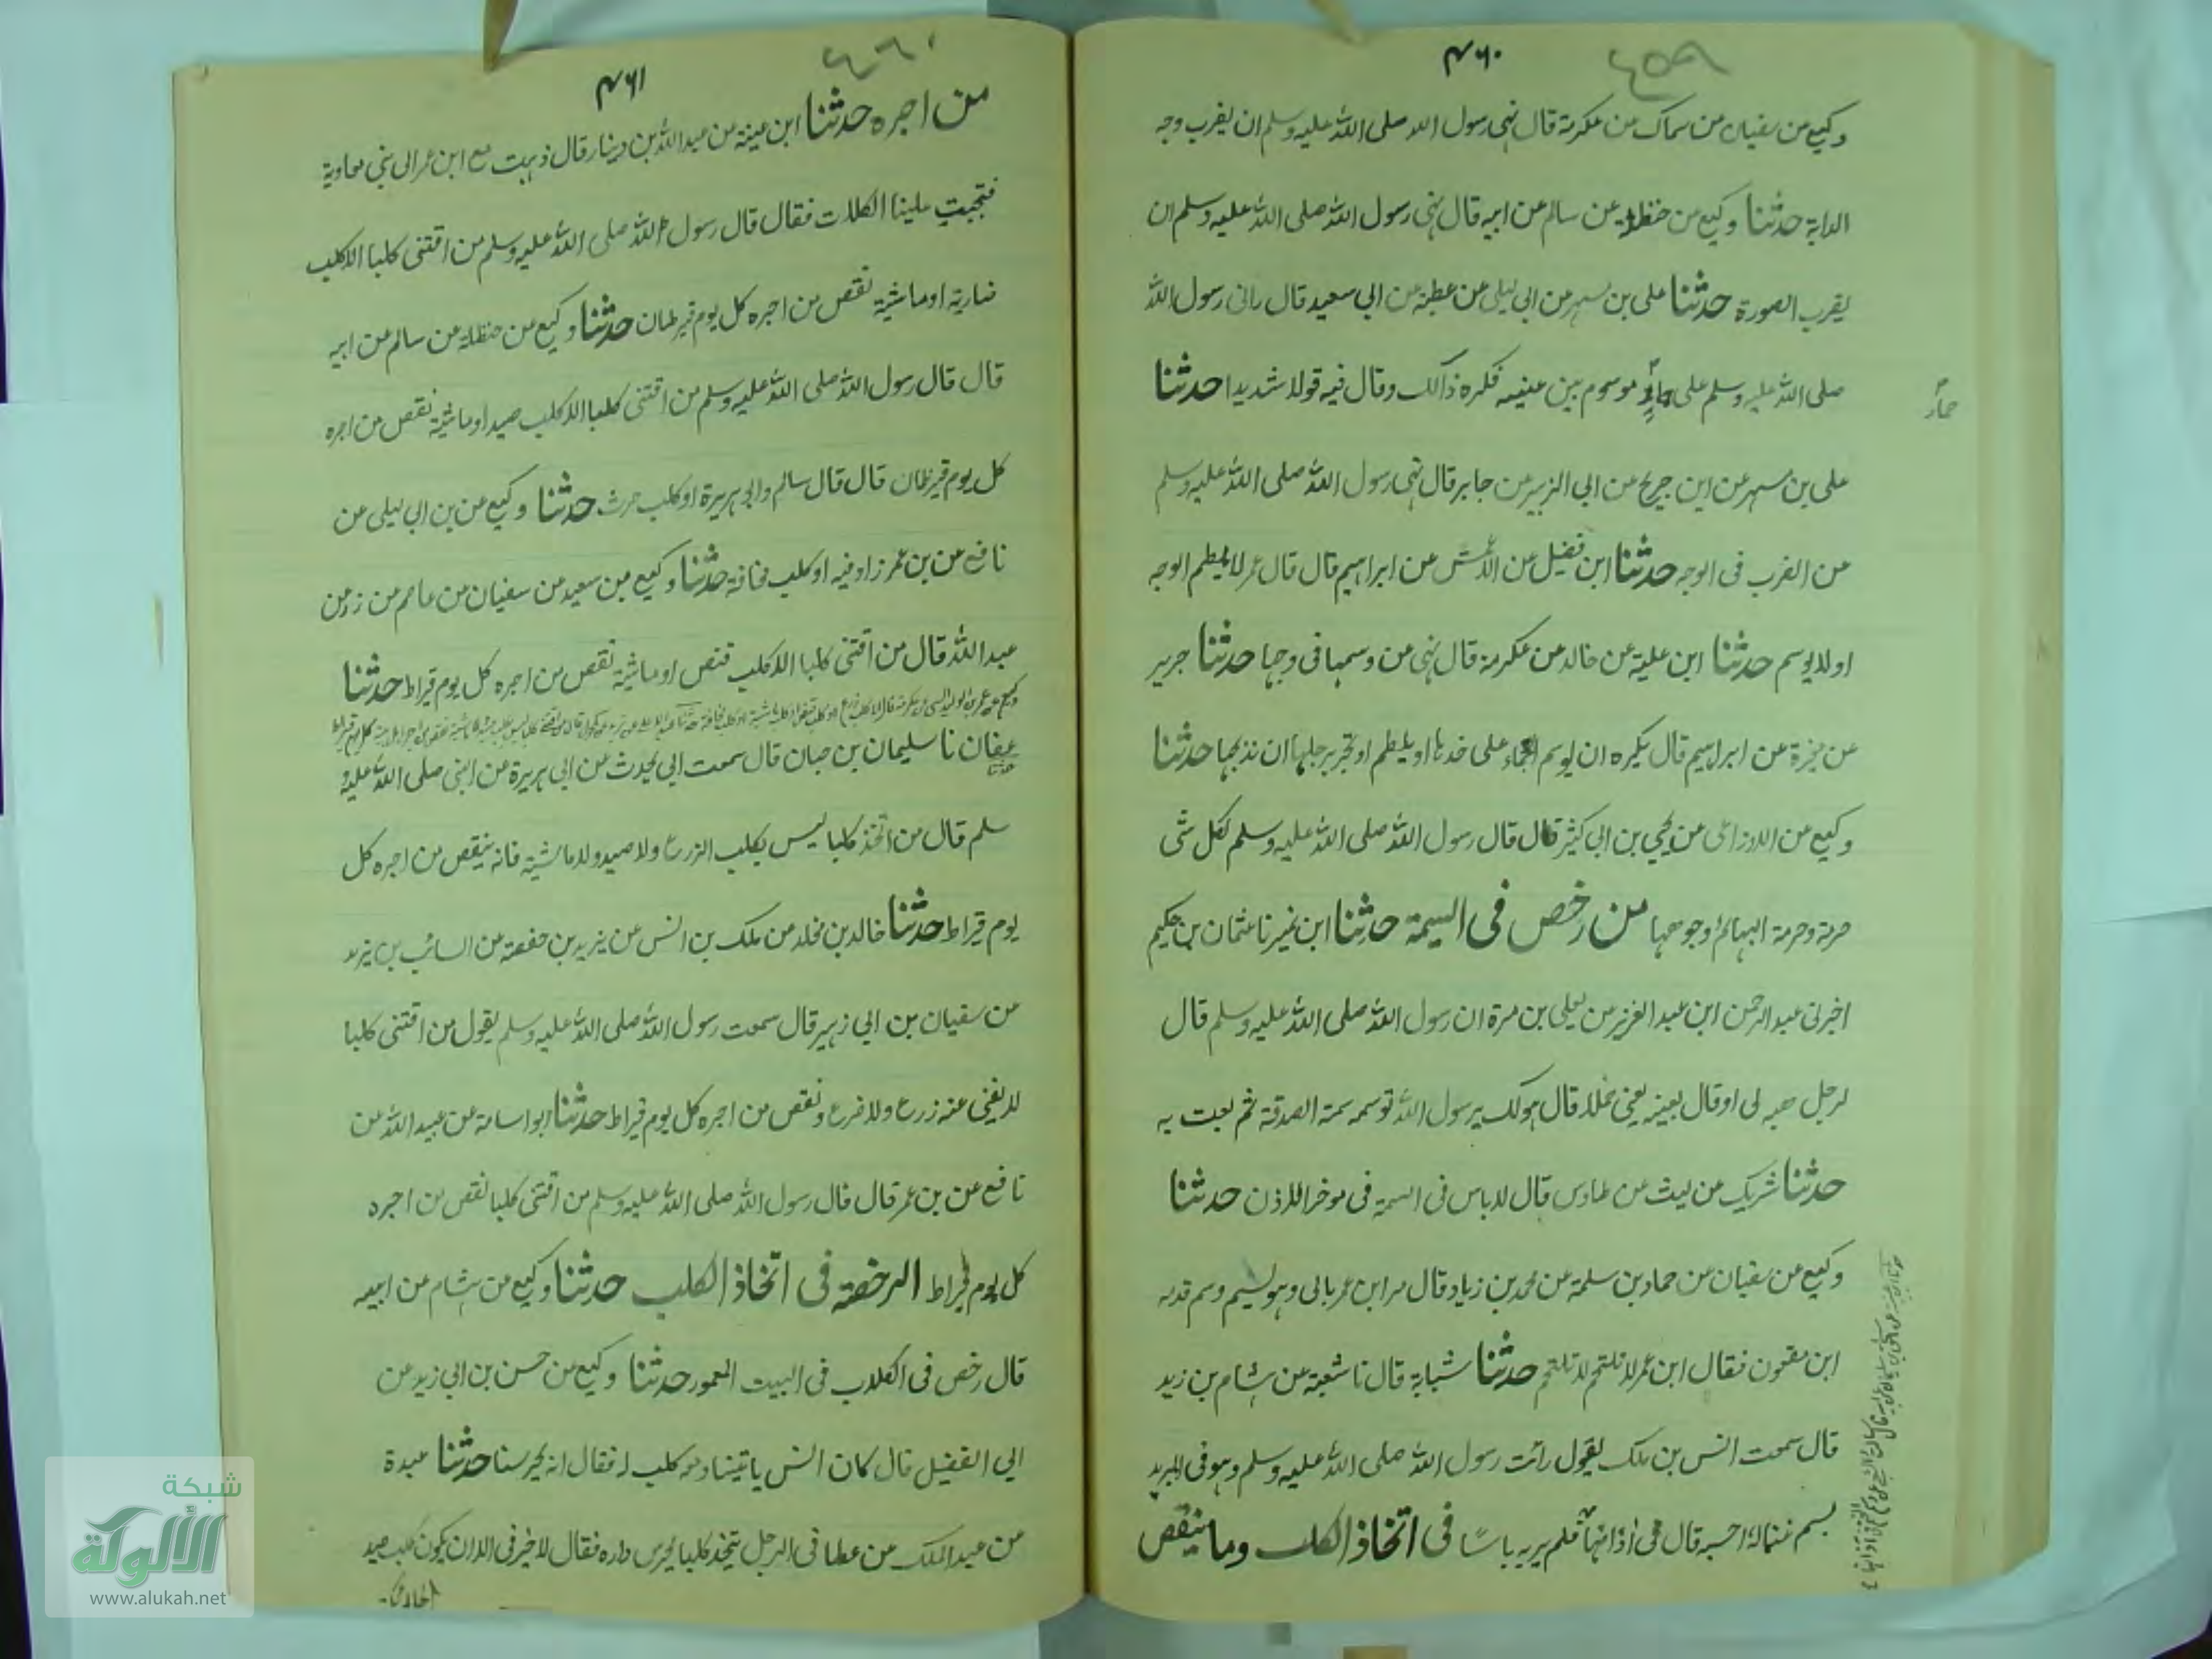 ۴۶۰
٤٥٩
وكيع عن سفيان عن سماك عن عكرمة قال نهى رسول الله صلى الله عليه وسلم ان يضرب وجه
الدابة حدثنا وكيع عن حنظلة عن سالم عن ابيه قال نهى رسول الله صلى الله عليه وسلم ان
يضرب الصورة حدثنا على بن مسهر عن ابي ليلى عن عطية عن ابي سعيد قال رانى رسول الله
صلى الله عليه وسلم على موسوم بين عينيه فكره ذالك وقال فيه قولا شديدا حدثنا
حمار
على بن مسهر عن ابن جريج عن ابي الزبير عن جابر قال نهى رسول الله صلى الله عليه وسلم
عن الضرب فى الوجه حدثنا ابن فضيل عن الاعمش عن ابراهيم قال قال عمر لا يلطم الوجه
اولا يوسم حدثنا ابن علية عن خالد عن عكرمة قال نهى عن وسمها فى وجها حدثنا جرير
عن مغيرة عن ابراهيم قال يكره ان يوسم العجماء على خدها او يلطم او تجر برجلها ان نذبحها حدثنا
وكيع عن الاوزاعى عن يحيي بن ابي كثير قال قال رسول الله صلى الله عليه وسلم لكل شى
حرمة وحرمة البهائم وجوهها من رخص فى السمة حدثنا ابن نمير نا عثمان بن حكيم
اخبرنى عبد الرحمن ابن عبد العزيز عن يعلى بن مرة ان رسول الله صلى الله عليه وسلم قال
لرجل هبه لى او قال بعينه يعنى جملا قال هو لك يرسول الله توسمه سمة الصدقة ثم بعث به
حدثنا شريك عن ليث عن طاوس قال لا باس فى السمة فى موخر الاذن حدثنا
وكيع عن سفيان عن حماد بن سلمة عن محمد بن زياد قال مر ابن عمر بابى وهو يسيم وسم قدمه
ابن مظعون فقال ابن عمر لا تلتحم لا تلتحم حدثنا شبابة قال نا شعبة عن هشام بن زيد
قال سمعت انس بن ملك يقول رأيت رسول الله صلى الله عليه وسلم وهو فى المربد
يسم غنما له احسبه قال فى اذانها فلم ير به باسا فى اتخاذ الكلب وما ينقص
۴۶۱
٤٦٠
من اجره حدثنا ابن عيينة عن عبد الله بن دينار قال ذهبت مع ابن عمر الى بنى معاوية
فنبحت علينا الكلاب فقال قال رسول الله صلى الله عليه وسلم من اقتنى كلبا الا كلب
ضارية او ماشية نقص من اجره كل يوم قيرطان حدثنا وكيع عن حنظلة عن سالم عن ابيه
قال قال رسول الله صلى الله عليه وسلم من اقتنى كلبا الا كلب صيد او ماشية نقص من اجره
كل يوم قيرطان قال قال سالم وابى هريرة او كلب حرث حدثنا وكيع عن بن ابي ليلى عن
نافع عن بن عمر زاد فيه او كلب مخافة حدثنا وكيع عن سعيد عن سفيان عن عاصم عن زر عن
عبد الله قال من اقتنى كلبا الا كلب قنص او ماشية نقص من اجره كل يوم قيراط حدثنا
عفان نا سليمان بن حبان قال سمعت ابي يحدث عن ابي هريرة عن النبى صلى الله عليه و
سلم قال من اتخذ كلبا ليس بكلب الزرع ولا صيد ولا ماشية فانه ينقص من اجره كل
يوم قيراط حدثنا خالد بن مخلد عن ملك بن انس عن يزيد بن حفصة عن السائب بن يزيد
عن سفيان بن ابي زهير قال سمعت رسول الله صلى الله عليه وسلم يقول من اقتنى كلبا
لا يغنى عنه زرع ولا ضرع ونقص من اجره كل يوم قيراط حدثنا ابو اسامة عن عبيد الله عن
نافع عن بن عمر قال قال رسول الله صلى الله عليه وسلم من اقتنى كلبا نقص من اجره
كل يوم قيراط الرخصة فى اتخاذ الكلب حدثنا وكيع عن هشام عن ابيه
قال رخص فى الكلاب فى البيت المعمور حدثنا وكيع عن حسن بن ابي زيد عن
ابي الفضيل قال كان انس ياتينا ومعه كلب له فقال انه يحرسنا حدثنا عبدة
عن عبد الملك عن عطا فى الرجل يتخذ كلبا يحرس داره فقال لا خير فى الا ان يكون كلب صيد
شبكة
الألوكة
www.alukah.net